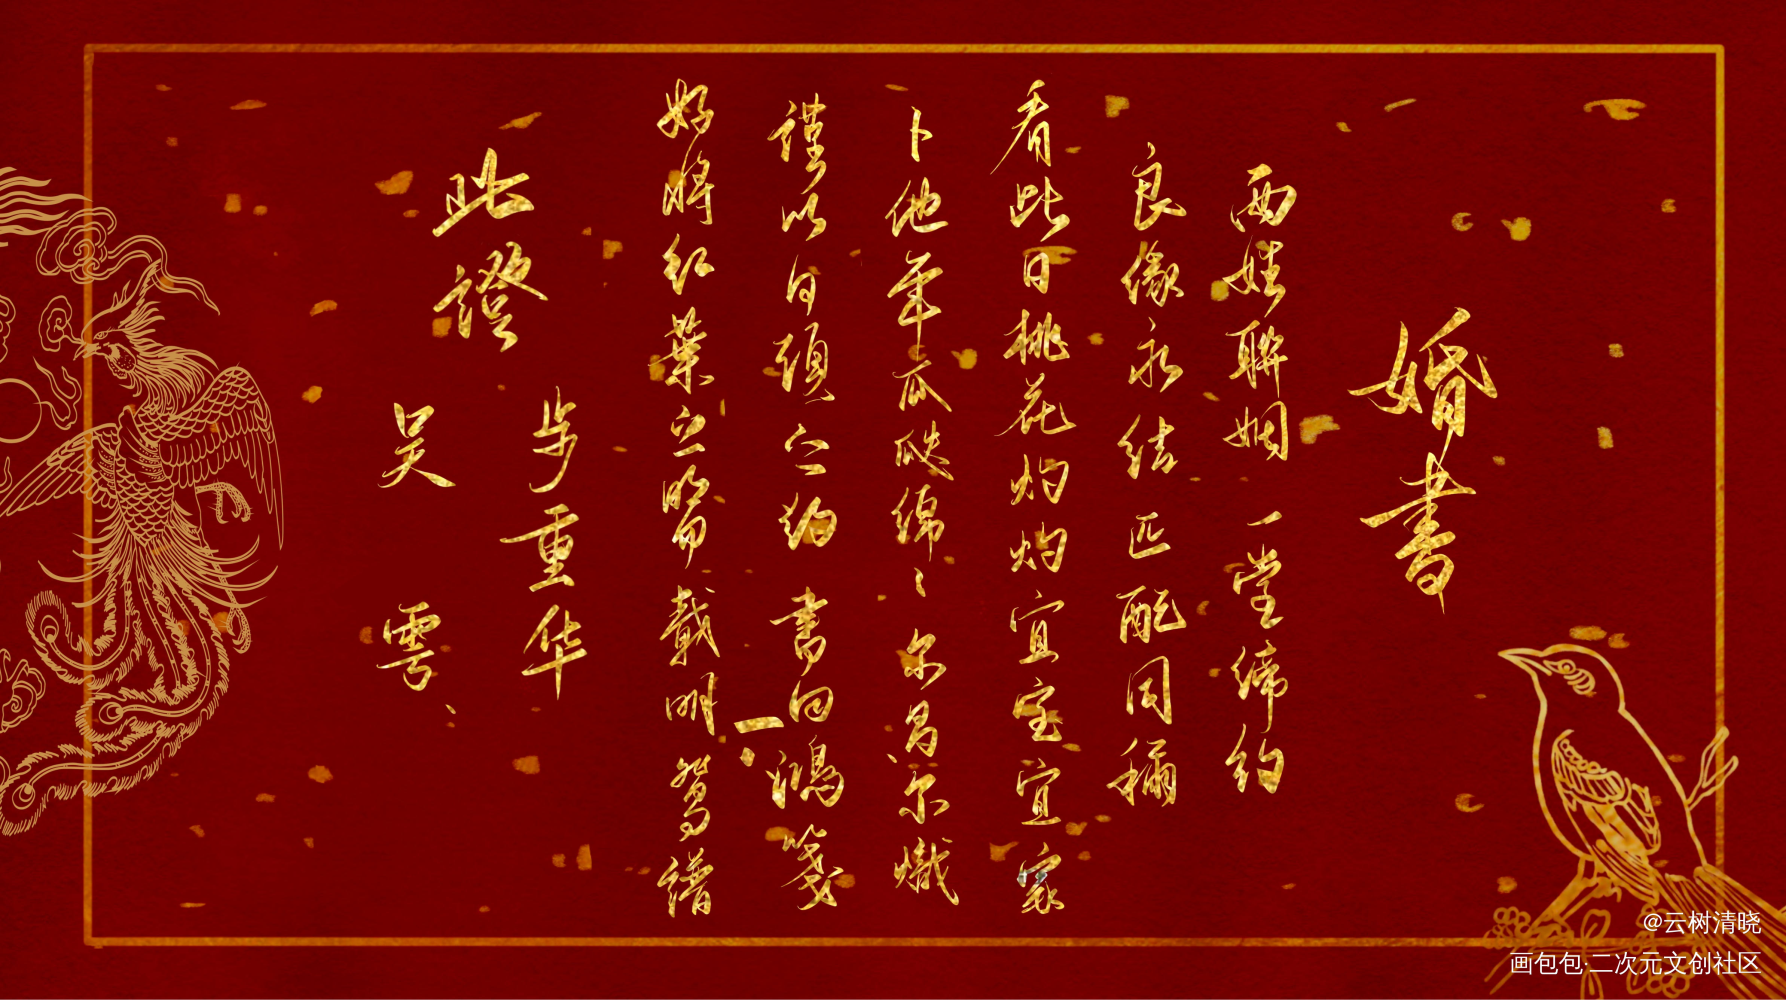 婚書
两姓聯姻 一堂締约
良缘永结 匹配同稱
看此日桃花灼灼宜室宜家
卜他年瓜瓞绵〻尔昌尔熾
謹以白頭之约 書向鴻箋
好將红葉之盟 載明鴛譜
此證
步重华
吴雩
@云树清晓
画包包·二次元文创社区